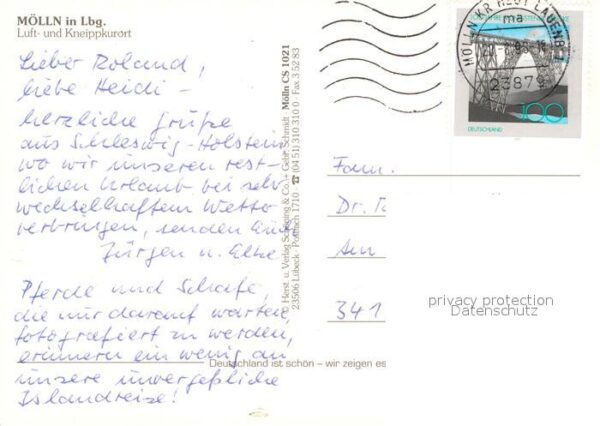 MÖLLN in Lbg.
Luft- und Kneippkurort
Lieber Roland,
liebe Heidi -
herzliche Grüße
aus Schleswig-Holstein,
wo wir unseren rest-
lichen Urlaub bei sehr
wechselhaftem Wetter
verbringen, senden Euch
Jürgen u. Elke
Pferde und Schafe,
die nur darauf warten,
fotografiert zu werden,
erinnern ein wenig an
unsere unvergeßliche
Islandreise!
© Herst. u. Verlag Schöning & Co. + Gebr. Schmidt · Mölln CS 1021
23506 Lübeck · Postfach 1710 · ☎ (04 51) 310 310 0 · Fax 3 52 83
Deutschland ist schön – wir zeigen es
MÖLLN KR HZGT LAUENB
ma
23879
100
DEUTSCHLAND
Fam.
Dr.
Am
341
privacy protection
Datenschutz